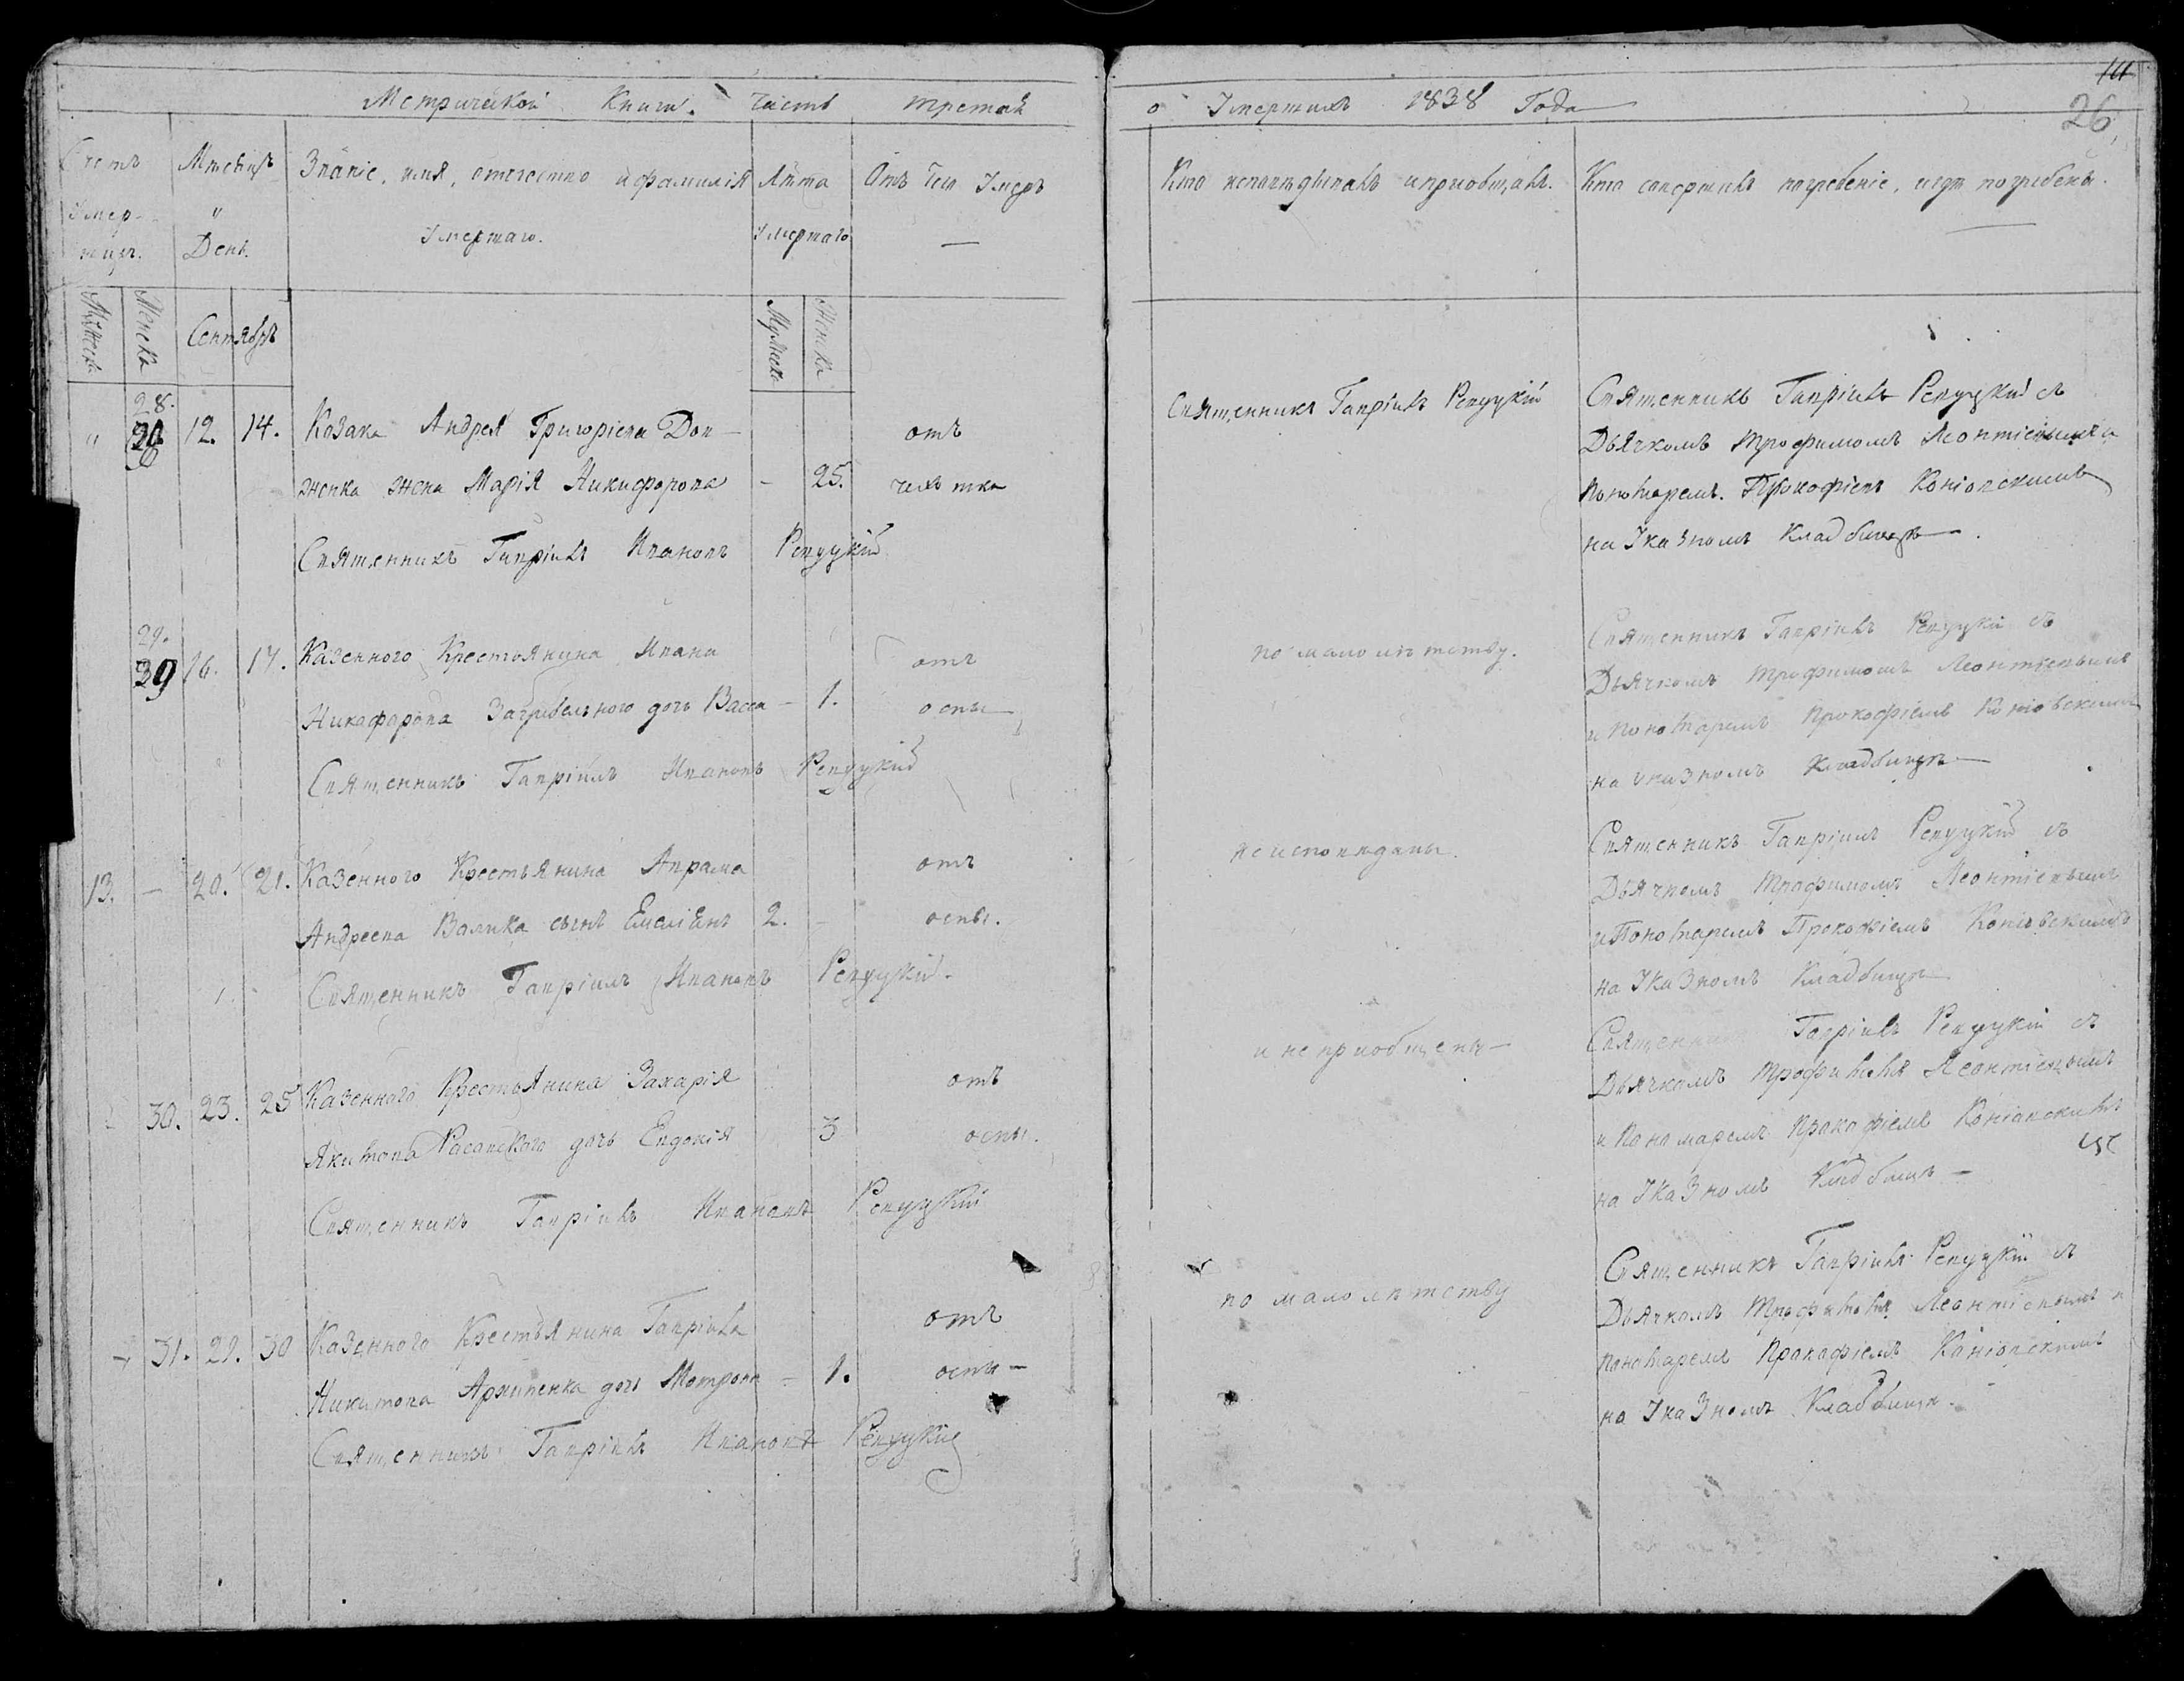 Метрической Книги. Часть третая
Счетъ Мѣсяцъ Званіе, имя, отечество и фамилія Лѣта Отъ чего Умеръ
Умер- и Умертаго
шихъ. День. Умершаго.
Мужеска Женска Сентябрь Мужеска Женска
28.
" 28 12. 14. Козака Андрея Григоріева Дов- отъ
женка жена Марія Никифорова - 25.
Священникъ Гавріилъ Ивановъ Репуцкій
29.
29 16. 17. Казенного Крестьянина Ивана отъ
Никифорова Загребельного дочь Васса - 1. оспы
Священникъ Гавріилъ Ивановъ Репуцкій
13. - 20. 21. Казенного Крестьянина Аврама отъ
Андреева Валика сынъ Емеліянъ 2. - оспы.
Священникъ Гавріилъ Ивановъ Репуцкій.
30. 23. 25 Казенного Крестьянина Захарія отъ
Якимова дочь Евдокія 3 оспы.
Священникъ Гавріилъ Ивановъ Репуцкій
31. 29. 30 Казенного Крестьянина Гавріила отъ
Никитова Архипенка дочь Мотрона - 1. оспы -
Священникъ Гавріилъ Ивановъ Репуцкій
о Умершихъ 1838 Года
26
Кто исповѣдывалъ и пріобщалъ. Кто совершилъ погребеніе, и гдѣ погребены.
Священникъ Гавріилъ Репуцкій Священникъ Гавріилъ Репуцкій съ
Дьячкомъ Трофимомъ Леонтіевымъ и
Пономаремъ Прокофіемъ Коніовскимъ
на Указномъ Кладбищѣ.
по малолѣтству. Священникъ Гавріилъ Репуцкій съ
Дьячкомъ Трофимомъ Леонтіевымъ
и Пономаремъ Прокофіемъ Коніовскимъ
на Указномъ Кладбищѣ
не исповѣданы. Священникъ Гавріилъ Репуцкій съ
Дьячкомъ Трофимомъ Леонтіевымъ
и Пономаремъ Прокофіемъ Коніовскимъ
на Указномъ Кладбищѣ
и не пріобщены - Священникъ Гавріилъ Репуцкій съ
Дьячкомъ Трофимомъ Леонтіевымъ
и Пономаремъ Прокофіемъ Коніовскимъ
на Указномъ Кладбищѣ -
по малолѣтству Священникъ Гавріилъ Репуцкій съ
Дьячкомъ Трофимомъ Леонтіевымъ и
Пономаремъ Прокофіемъ Коніовскимъ
на Указномъ Кладбищѣ.